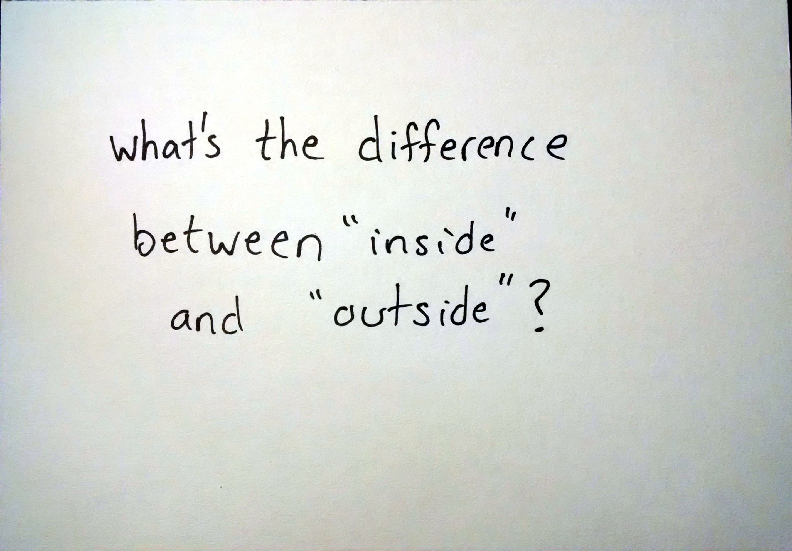 what's the difference
between "inside"
and "outside"?